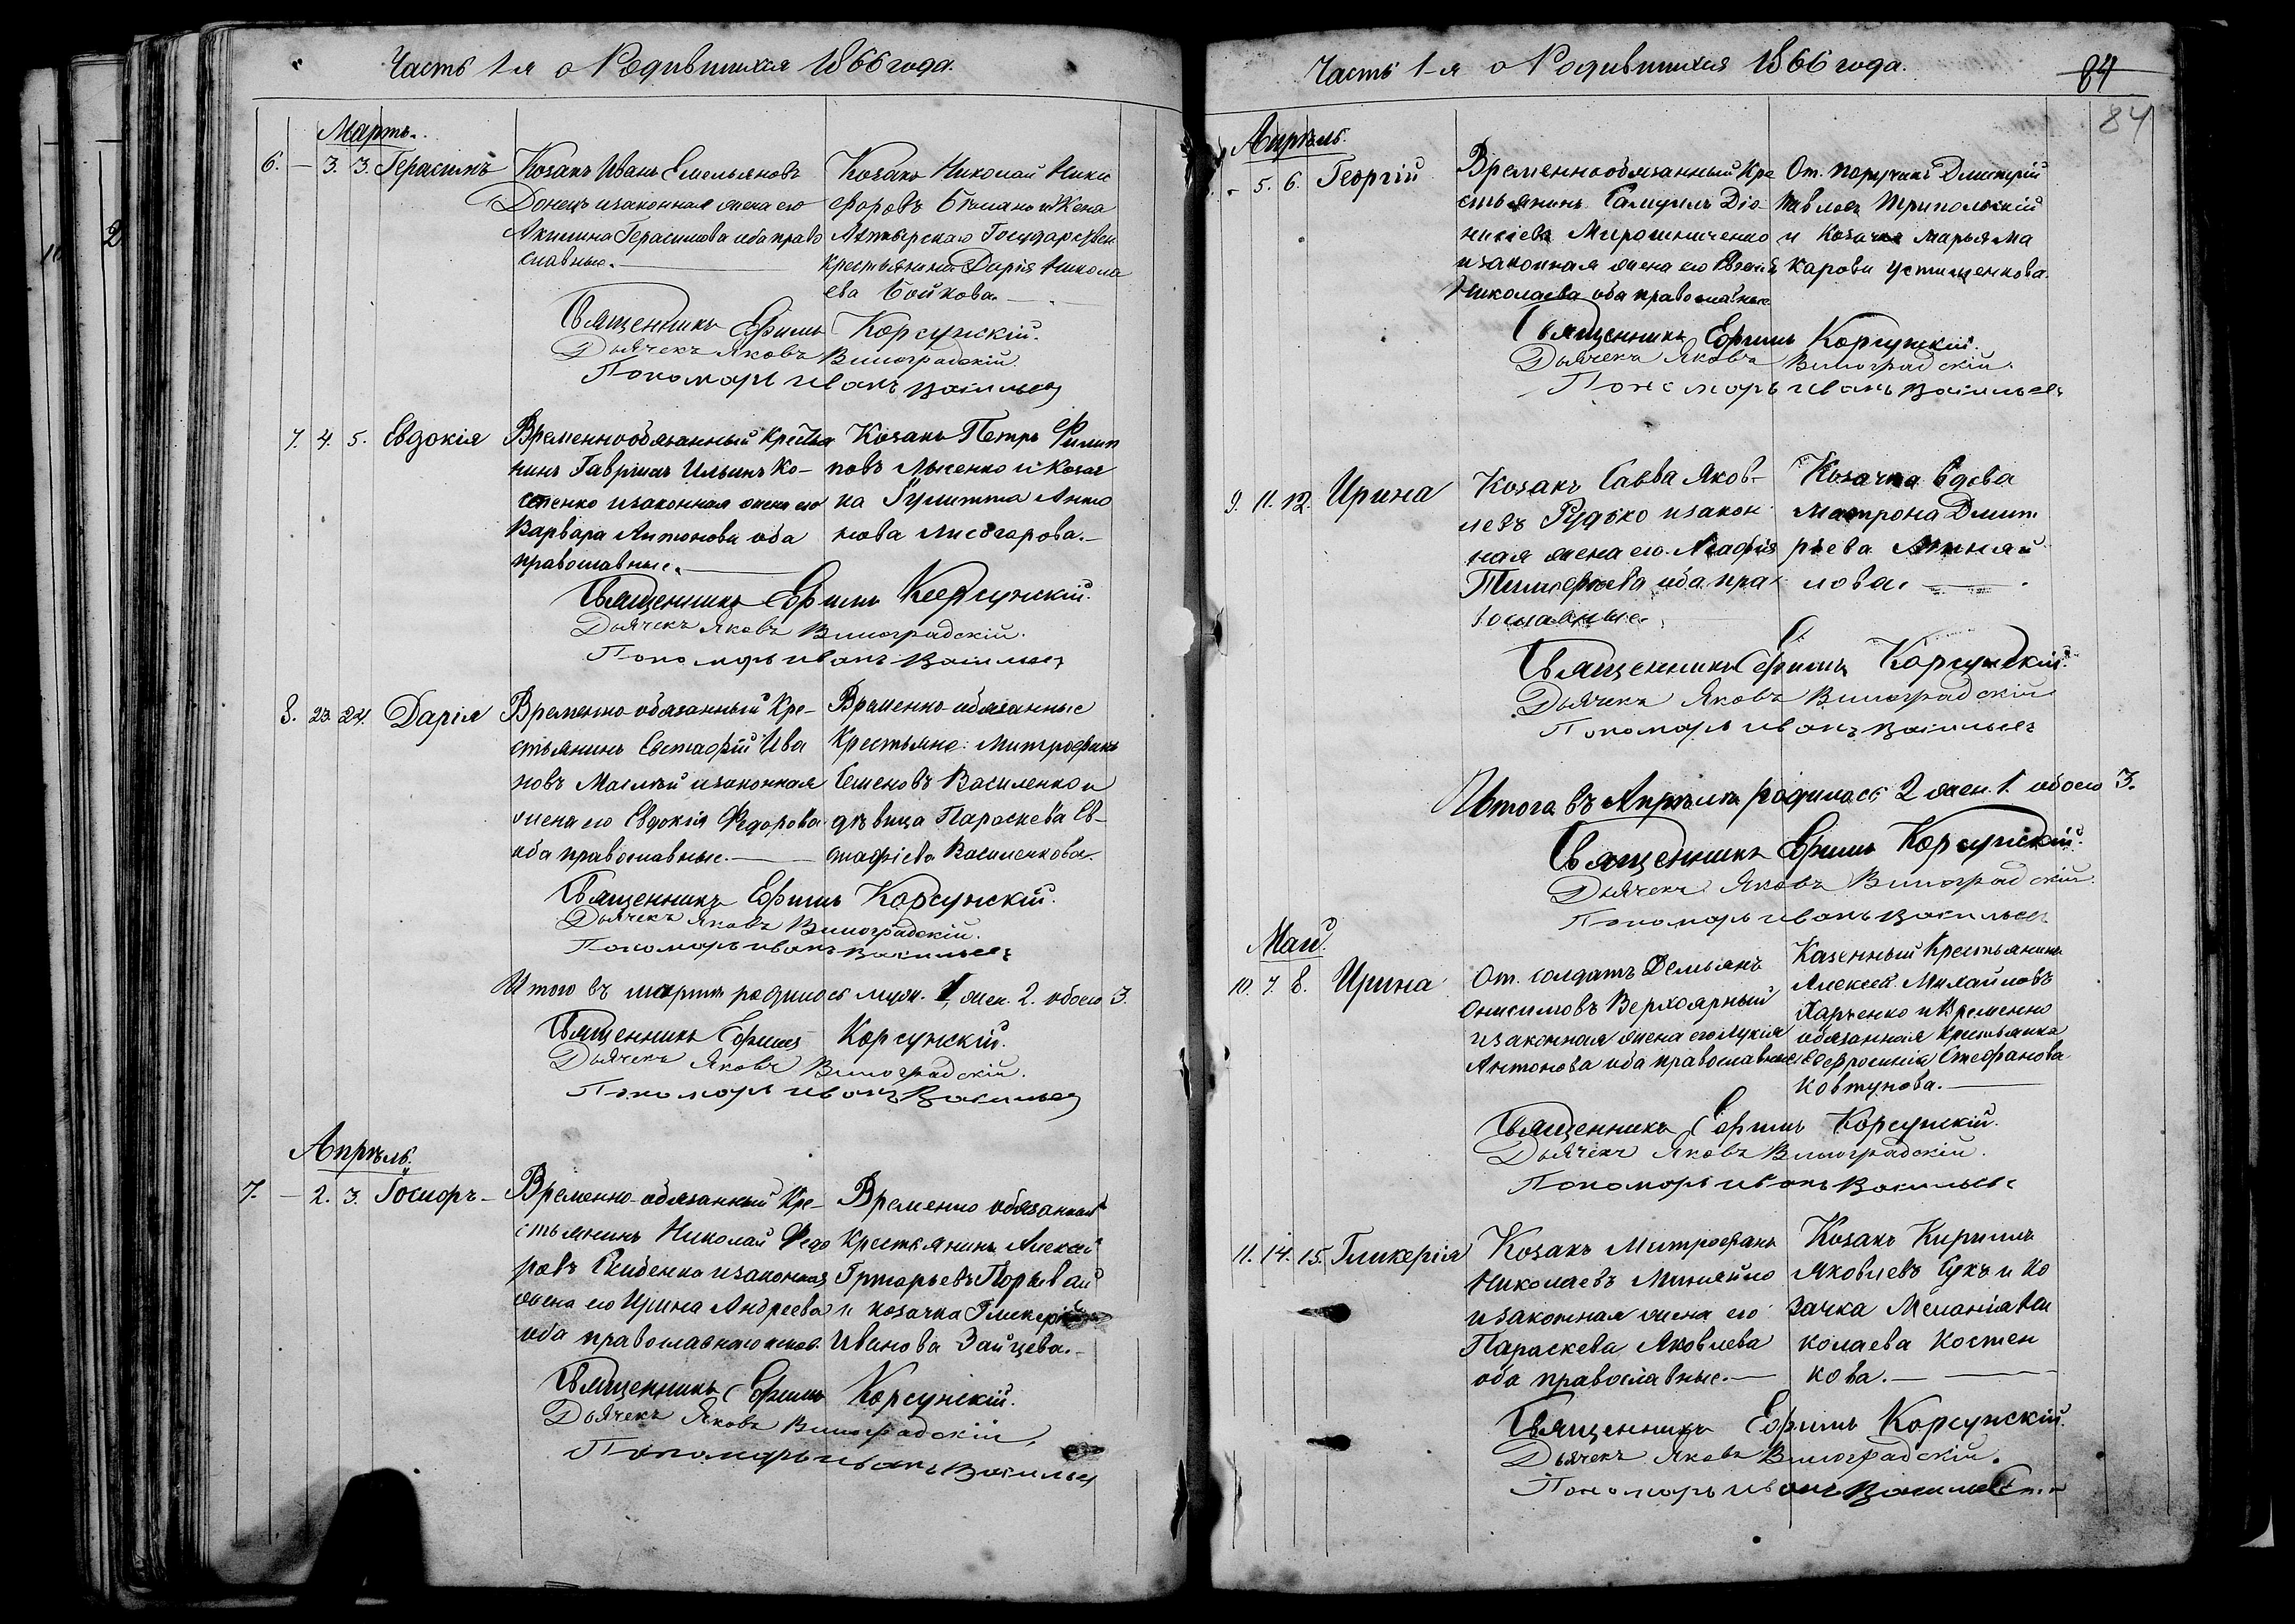 Часть 1-я о Родившихся 1866 года.
Мартъ.
6. — 3. 3. Герасимъ
Козакъ Иванъ Емельяновъ
Донецъ и законная жена его
Акилина Герасимова оба право
славные.
Козакъ Николай Ники
форовъ и Жена
Государствен
крестьянина Дарія Никола
ева Бойкова.
Священникъ Ефимъ Корсунскій.
Дьячекъ Яковъ Виноградскій.
Пономарь Иванъ Васильев
7. 4. 5. Евдокія
Временнообязанный Крестья
нинъ Гавріилъ Ильинъ Ко-
сенко и законная жена его
Варвара Антонова оба
православные.
Козакъ Петръ Филип
повъ Лысенко и Козач
ка Гулитта Анто
нова
Священникъ Ефимъ Корсунскій.
Дьячекъ Яковъ Виноградскій.
Пономарь Иванъ Васильев
8. 23. 24. Дарія
Временно-обязанный Кре-
стьянинъ Евстафій Ива
новъ и законная
жена его Евдокія Федорова
оба православные.
Временно-обязанные
Крестьяне: Митрофанъ
Семеновъ Василенко и
дѣвица Параскева Ев-
стафіева Василенкова.
Священникъ Ефимъ Корсунскій.
Дьячекъ Яковъ Виноградскій.
Пономарь Иванъ Васильев
Итого въ мартѣ родилось муж. 1, жен. 2. обоего 3.
Священникъ Ефимъ Корсунскій.
Дьячекъ Яковъ Виноградскій.
Пономарь Иванъ Васильев
Апрѣль.
7. — 2. 3.
Временно-обязанный Кре-
стьянинъ Николай Федо
ровъ и законная
жена его Ирина Андреева
оба православнаго испов.
Временно обязанный
Крестьянинъ Алексей
Григорьевъ
и козачка Гликерія
Иванова Зайцева.
Священникъ Ефимъ Корсунскій.
Дьячекъ Яковъ Виноградскій.
Пономарь Иванъ Васильев
Часть 1-я о Родившихся 1866 года.
84
84
Апрѣль.
- 5. 6. Георгій
Временнообязанный Кре
стьянинъ Самуилъ Діо
нисіевъ Мирошниченко
и законная жена его
Николаева оба православные
От. поручикъ Дмитрій
Павловъ Трипольскій
и Козачка Марья Ма
карова Устименкова.
Священникъ Ефимъ Корсунскій.
Дьячекъ Яковъ Виноградскій.
Пономарь Иванъ Васильев
9. 11. 12. Ирина
Козакъ Савва Яков-
левъ Рудько и закон
ная жена его Агафія
Тимофеева оба пра
вославные.
Козачка вдова
Матрона Дмит
ріева Миняй
лова.
Священникъ Ефимъ Корсунскій.
Дьячекъ Яковъ Виноградскій
Пономарь Иванъ Васильев
Итого въ Апрѣлѣ родилось 2 жен. 1. обоего 3.
Священникъ Ефимъ Корсунскій.
Дьячекъ Яковъ Виноградскій.
Пономарь Иванъ Васильев
Май.
10. 7. 8. Ирина
От. солдатъ Демьянъ
Онисимовъ Верхоярный
и законная жена его Лукія
Антонова оба православные
Казенный Крестьянинъ
Алексей Михайловъ
Харченко и Временно
обязанная Крестьянка
Евфросинія Стефанова
Ковтунова.
Священникъ Ефимъ Корсунскій.
Дьячекъ Яковъ Виноградскій.
Пономарь Иванъ Васильев
11. 14. 15. Гликерія
Козакъ Митрофанъ
Николаевъ Миняйло
и законная жена его
Параскева Яковлева
оба православные.
Козакъ Кириллъ
Яковлевъ Сукъ и Ко
зачка Меланія Ни
колаева Костен
кова.
Священникъ Ефимъ Корсунскій.
Дьячекъ Яковъ Виноградскій.
Пономарь Иванъ